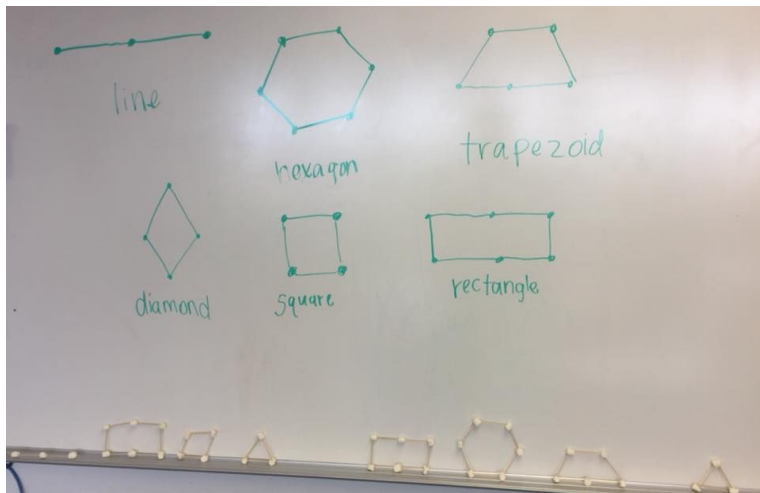 line
hexagon
trapezoid
diamond
square
rectangle